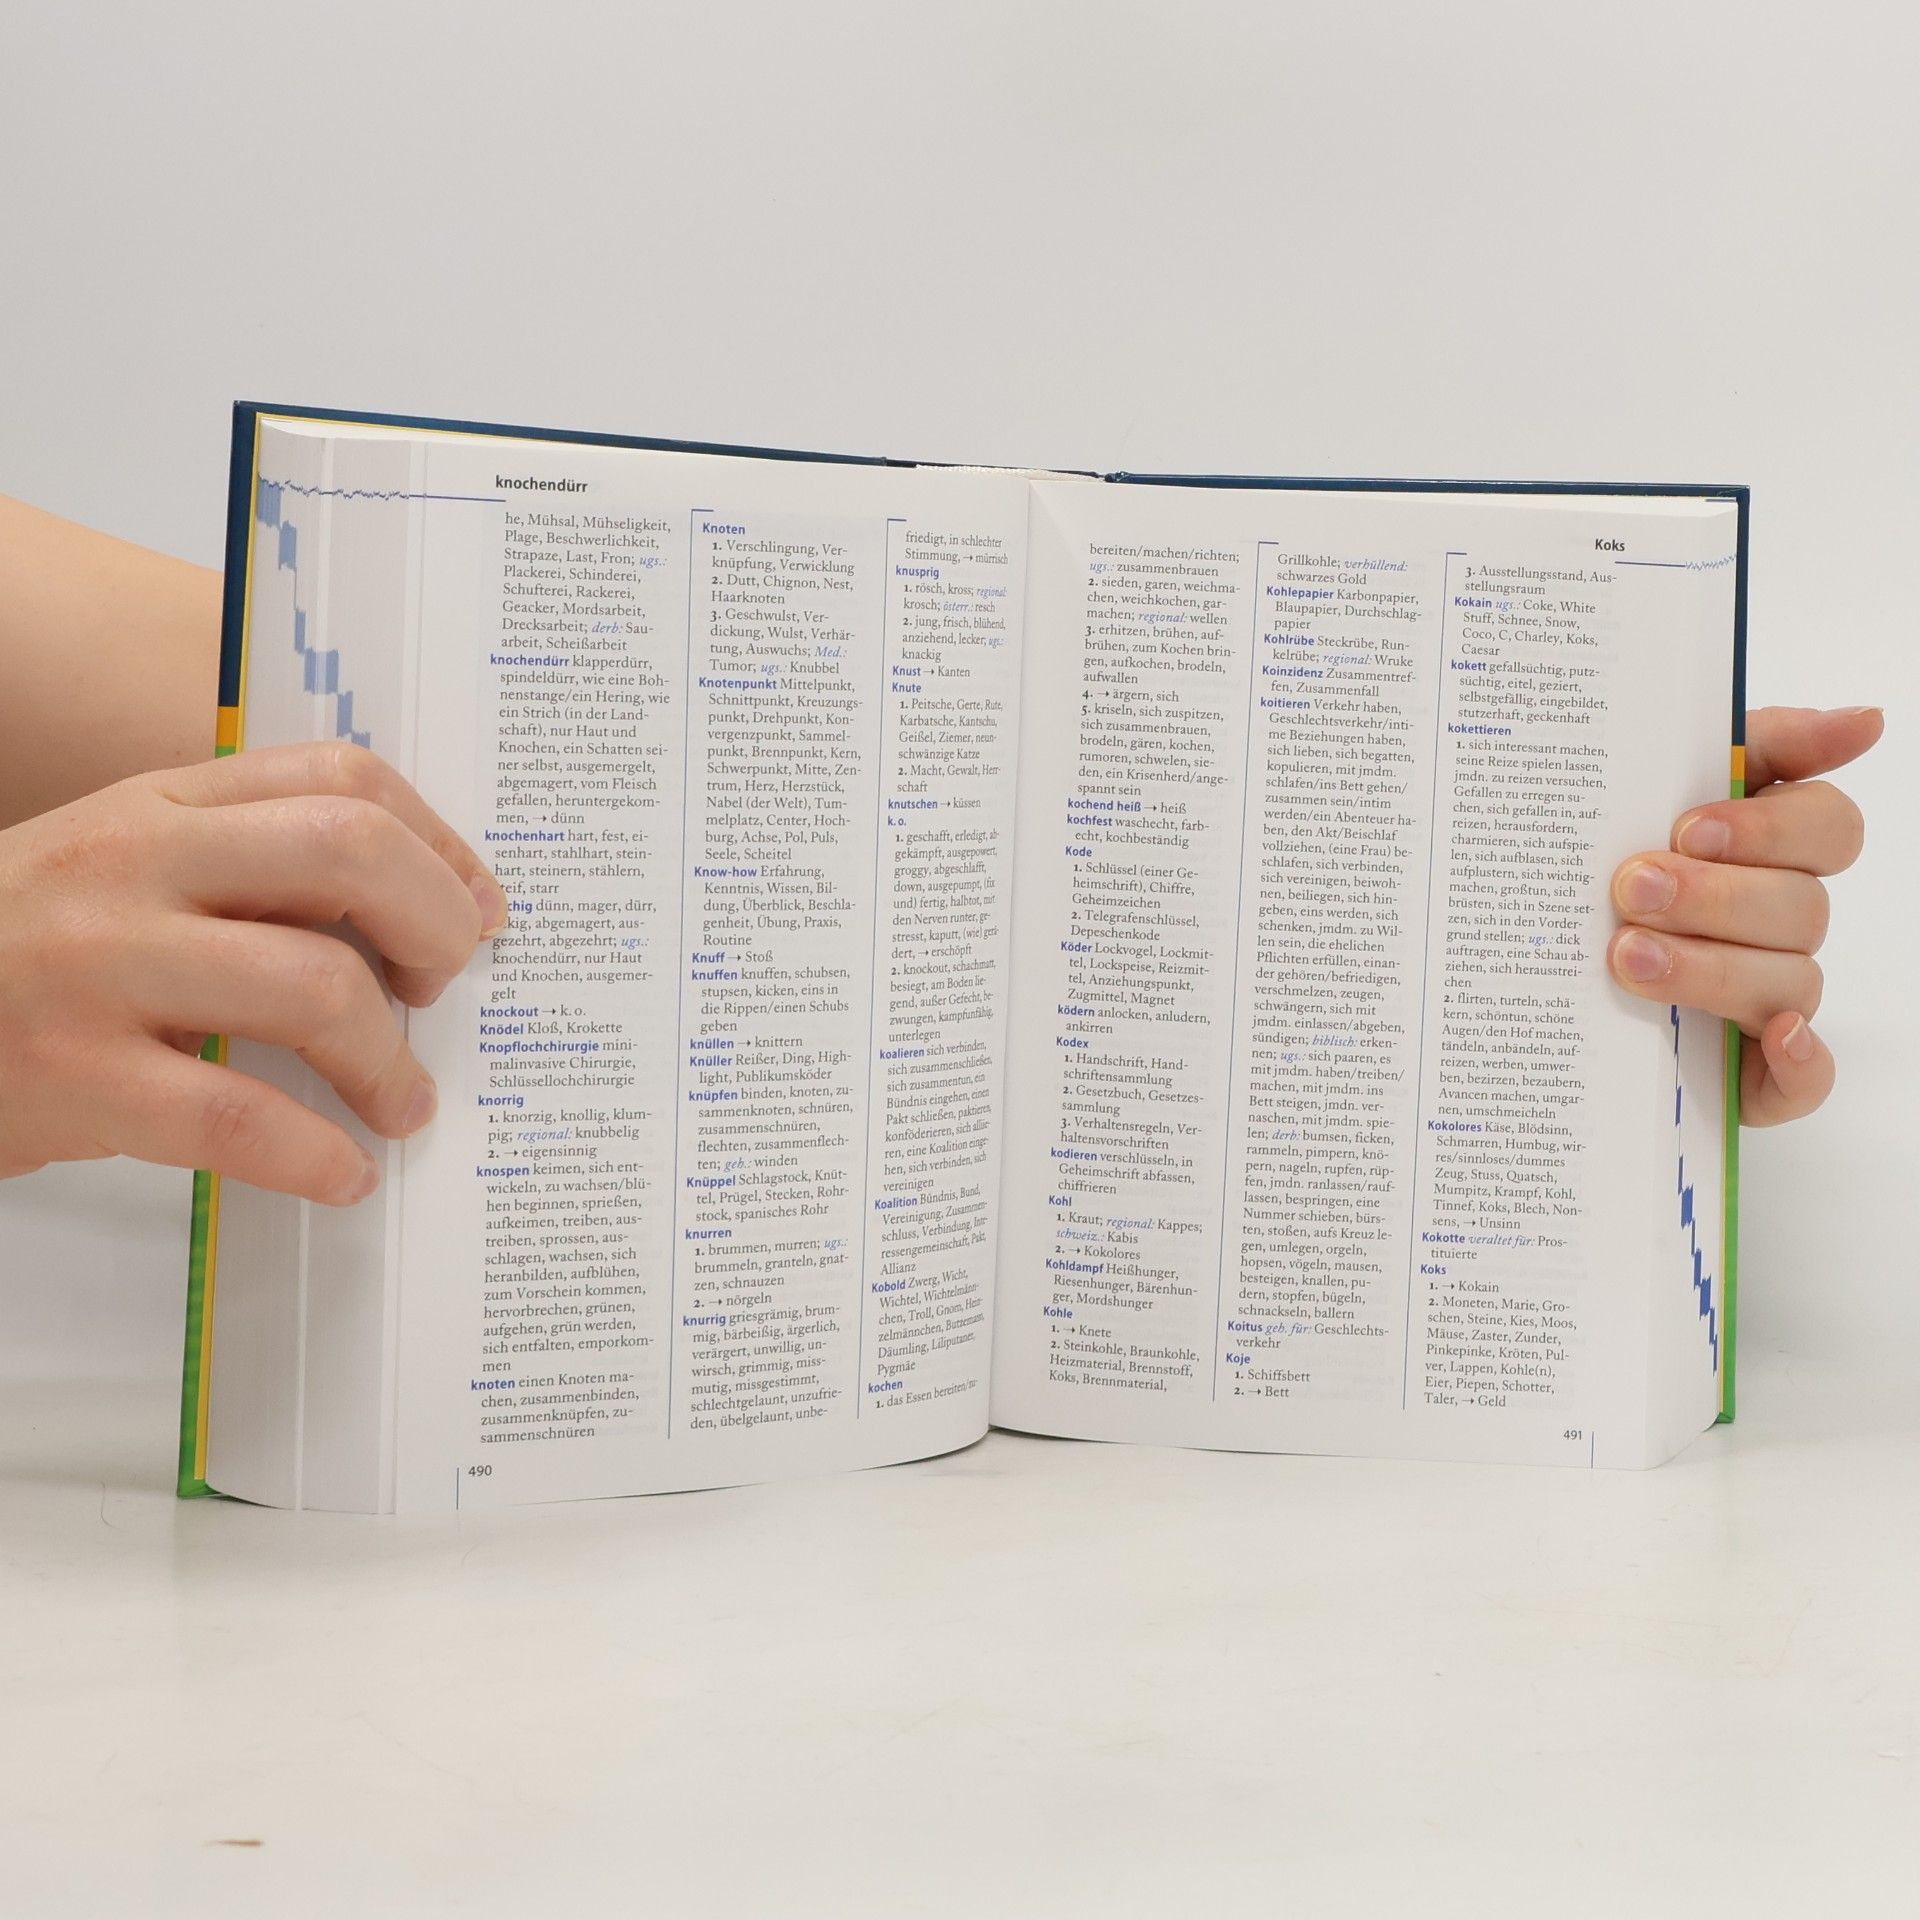 knochendürr
he, Mühsal, Mühseligkeit,
Plage, Beschwerlichkeit,
Strapaze, Last, Fron; ugs.:
Plackerei, Schinderei,
Schufterei, Rackerei,
Geacker, Mordsarbeit,
Drecksarbeit; derb: Sau-
arbeit, Scheißarbeit
knochendürr klapperdürr,
spindeldürr, wie eine Boh-
nenstange/ein Hering, wie
ein Strich (in der Land-
schaft), nur Haut und
Knochen, ein Schatten sei-
ner selbst, ausgemergelt,
abgemagert, vom Fleisch
gefallen, heruntergekom-
men, → dünn
knochenhart hart, fest, ei-
senhart, stahlhart, stein-
hart, steinern, stählern,
teif, starr
chig dünn, mager, dürr,
kig, abgemagert, aus-
gezehrt, abgezehrt; ugs.:
knochendürr, nur Haut
und Knochen, ausgemer-
gelt
knockout → k. o.
Knödel Kloß, Krokette
Knopflochchirurgie mini-
malinvasive Chirurgie,
Schlüssellochchirurgie
knorrig
1. knorzig, knollig, klum-
pig; regional: knubbelig
2. → eigensinnig
knospen keimen, sich ent-
wickeln, zu wachsen/blü-
hen beginnen, sprießen,
aufkeimen, treiben, aus-
treiben, sprossen, aus-
schlagen, wachsen, sich
heranbilden, aufblühen,
zum Vorschein kommen,
hervorbrechen, grünen,
aufgehen, grün werden,
sich entfalten, emporkom-
men
knoten einen Knoten ma-
chen, zusammenbinden,
zusammenknüpfen, zu-
sammenschnüren
Knoten
1. Verschlingung, Ver-
knüpfung, Verwicklung
2. Dutt, Chignon, Nest,
Haarknoten
3. Geschwulst, Ver-
dickung, Wulst, Verhär-
tung, Auswuchs; Med.:
Tumor; ugs.: Knubbel
Knotenpunkt Mittelpunkt,
Schnittpunkt, Kreuzungs-
punkt, Drehpunkt, Kon-
vergenzpunkt, Sammel-
punkt, Brennpunkt, Kern,
Schwerpunkt, Mitte, Zen-
trum, Herz, Herzstück,
Nabel (der Welt), Tum-
melplatz, Center, Hoch-
burg, Achse, Pol, Puls,
Seele, Scheitel
Know-how Erfahrung,
Kenntnis, Wissen, Bil-
dung, Überblick, Beschla-
genheit, Übung, Praxis,
Routine
Knuff → Stoß
knuffen knuffen, schubsen,
stupsen, kicken, eins in
die Rippen/einen Schubs
geben
knüllen → knittern
Knüller Reißer, Ding, High-
light, Publikumsköder
knüpfen binden, knoten, zu-
sammenknoten, schnüren,
zusammenschnüren,
flechten, zusammenflech-
ten; geh.: winden
Knüppel Schlagstock, Knüt-
tel, Prügel, Stecken, Rohr-
stock, spanisches Rohr
knurren
1. brummen, murren; ugs.:
brummeln, granteln, gnat-
zen, schnauzen
2. → nörgeln
knurrig griesgrämig, brum-
mig, bärbeißig, ärgerlich,
verärgert, unwillig, un-
wirsch, grimmig, miss-
mutig, missgestimmt,
schlechtgelaunt, unzufrie-
den, übelgelaunt, unbe-
friedigt, in schlechter
Stimmung, → mürrisch
knusprig
1. rösch, kross; regional:
krosch; österr.: resch
2. jung, frisch, blühend,
anziehend, lecker; ugs.:
knackig
Knust → Kanten
Knute
1. Peitsche, Gerte, Rute,
Karbatsche, Kantschu,
Geißel, Ziemer, neun-
schwänzige Katze
2. Macht, Gewalt, Herr-
schaft
knutschen → küssen
k. o.
1. geschafft, erledigt, ab-
gekämpft, ausgepowert,
groggy, abgeschlafft,
down, ausgepumpt, (fix
und) fertig, halbtot, mit
den Nerven runter, ge-
stresst, kaputt, (wie) gerä-
dert, → erschöpft
2. knockout, schachmatt,
besiegt, am Boden lie-
gend, außer Gefecht, be-
zwungen, kampfunfähig,
unterlegen
koalieren sich verbinden,
sich zusammenschließen,
sich zusammentun, ein
Bündnis eingehen, einen
Pakt schließen, paktieren,
konföderieren, sich alliie-
ren, eine Koalition einge-
hen, sich verbinden, sich
vereinigen
Koalition Bündnis, Bund,
Vereinigung, Zusammen-
schluss, Verbindung, Inte-
ressengemeinschaft, Pakt,
Allianz
Kobold Zwerg, Wicht,
Wichtel, Wichtelmänn-
chen, Troll, Gnom, Hein-
zelmännchen, Butzemann,
Däumling, Liliputaner,
Pygmäe
kochen
1. das Essen bereiten/zu-
490
Koks
bereiten/machen/richten;
ugs.: zusammenbrauen
2. sieden, garen, weichma-
chen, weichkochen, gar-
machen; regional: wellen
3. erhitzen, brühen, auf-
brühen, zum Kochen brin-
gen, aufkochen, brodeln,
aufwallen
4. → ärgern, sich
5. kriseln, sich zuspitzen,
sich zusammenbrauen,
brodeln, gären, kochen,
rumoren, schwelen, sie-
den, ein Krisenherd/ange-
spannt sein
kochend heiß → heiß
kochfest waschecht, farb-
echt, kochbeständig
Kode
1. Schlüssel (einer Ge-
heimschrift), Chiffre,
Geheimzeichen
2. Telegrafenschlüssel,
Depeschenkode
Köder Lockvogel, Lockmit-
tel, Lockspeise, Reizmit-
tel, Anziehungspunkt,
Zugmittel, Magnet
ködern anlocken, anludern,
ankirren
Kodex
1. Handschrift, Hand-
schriftensammlung
2. Gesetzbuch, Gesetzes-
sammlung
3. Verhaltensregeln, Ver-
haltensvorschriften
kodieren verschlüsseln, in
Geheimschrift abfassen,
chiffrieren
Kohl
1. Kraut; regional: Kappes;
schweiz.: Kabis
2. → Kokolores
Kohldampf Heißhunger,
Riesenhunger, Bärenhun-
ger, Mordshunger
Kohle
1. → Knete
2. Steinkohle, Braunkohle,
Heizmaterial, Brennstoff,
Koks, Brennmaterial,
Grillkohle; verhüllend:
schwarzes Gold
Kohlepapier Karbonpapier,
Blaupapier, Durchschlag-
papier
Kohlrübe Steckrübe, Run-
kelrübe; regional: Wruke
Koinzidenz Zusammentref-
fen, Zusammenfall
koitieren Verkehr haben,
Geschlechtsverkehr/inti-
me Beziehungen haben,
sich lieben, sich begatten,
kopulieren, mit jmdm.
schlafen/ins Bett gehen/
zusammen sein/intim
werden/ein Abenteuer ha-
ben, den Akt/Beischlaf
vollziehen, (eine Frau) be-
schlafen, sich verbinden,
sich vereinigen, beiwoh-
nen, beiliegen, sich hin-
geben, eins werden, sich
schenken, jmdm. zu Wil-
len sein, die ehelichen
Pflichten erfüllen, einan-
der gehören/befriedigen,
verschmelzen, zeugen,
schwängern, sich mit
jmdm. einlassen/abgeben,
sündigen; biblisch: erken-
nen; ugs.: sich paaren, es
mit jmdm. haben/treiben/
machen, mit jmdm. ins
Bett steigen, jmdn. ver-
naschen, mit jmdm. spie-
len; derb: bumsen, ficken,
rammeln, pimpern, knö-
pern, nageln, rupfen, rüp-
fen, jmdn. ranlassen/rauf-
lassen, bespringen, eine
Nummer schieben, bürs-
ten, stoßen, aufs Kreuz le-
gen, umlegen, orgeln,
hopsen, vögeln, mausen,
besteigen, knallen, pu-
dern, stopfen, bügeln,
schnackseln, ballern
Koitus geh. für: Geschlechts-
verkehr
Koje
1. Schiffsbett
2. → Bett
3. Ausstellungsstand, Aus-
stellungsraum
Kokain ugs.: Coke, White
Stuff, Schnee, Snow,
Coco, C, Charley, Koks,
Caesar
kokett gefallsüchtig, putz-
süchtig, eitel, geziert,
selbstgefällig, eingebildet,
stutzerhaft, geckenhaft
kokettieren
1. sich interessant machen,
seine Reize spielen lassen,
jmdn. zu reizen versuchen,
Gefallen zu erregen su-
chen, sich gefallen in, auf-
reizen, herausfordern,
charmieren, sich aufspie-
len, sich aufblasen, sich
aufplustern, sich wichtig-
machen, großtun, sich
brüsten, sich in Szene set-
zen, sich in den Vorder-
grund stellen; ugs.: dick
auftragen, eine Schau ab-
ziehen, sich herausstrei-
chen
2. flirten, turteln, schä-
kern, schöntun, schöne
Augen/den Hof machen,
tändeln, anbändeln, auf-
reizen, werben, umwer-
ben, bezirzen, bezaubern,
Avancen machen, umgar-
nen, umschmeicheln
Kokolores Käse, Blödsinn,
Schmarren, Humbug, wir-
res/sinnloses/dummes
Zeug, Stuss, Quatsch,
Mumpitz, Krampf, Kohl,
Tinnef, Koks, Blech, Non-
sens, → Unsinn
Kokotte veraltet für: Pros-
tituierte
Koks
1. → Kokain
2. Moneten, Marie, Gro-
schen, Steine, Kies, Moos,
Mäuse, Zaster, Zunder,
Pinkepinke, Kröten, Pul-
ver, Lappen, Kohle(n),
Eier, Piepen, Schotter,
Taler, → Geld
491